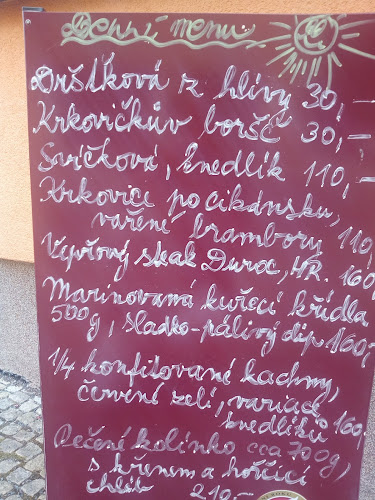 Denní menu
Drštková z hlívy 30,-
Krkovičkův boršč 30,-
Svíčková, knedlík 110,-
Krkovice po cikánsku,
vařené brambory 110,
Vepřový steak Duroc, HR. 160,
Marinovaná kuřecí křídla
500g, sladko-pálivý dip 160,-
1/4 konfitované kachny,
červené zelí, variace
knedlíků 160,
Pečené kolínko cca 700g,
s křenem a hořčicí
chléb 210,-